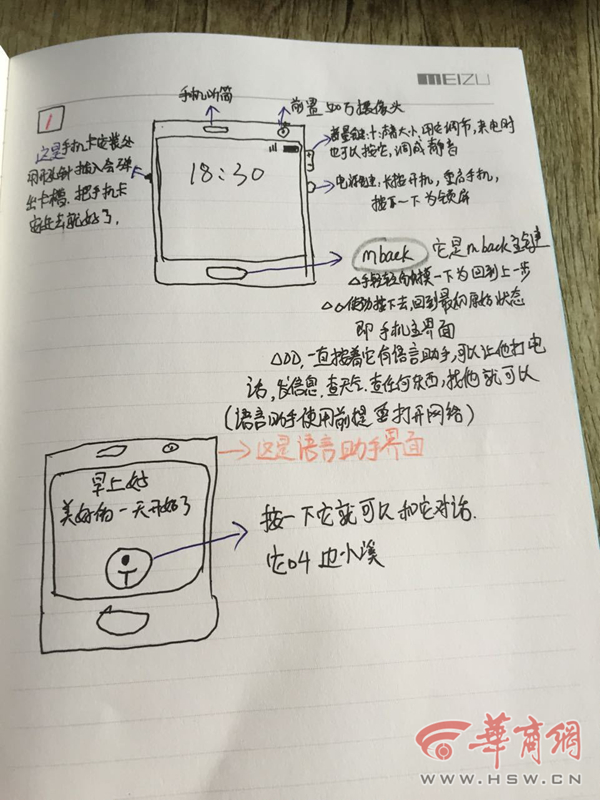 MEIZU
1
手机听筒
前置500万摄像头
这是手机卡安装处
用顶针插入会弹
出卡槽.把手机卡
安进去就好了.
18:30
音量键:十:声音大小,用它调节,来电时
也可以按它,调成静音
电源键:长按开机,重启手机,
按下一下为锁屏
mback 它是mback主键
△手轻轻的触摸一下为回到上一步
△△使劲按下去,回到最初原始状态
即手机主界面
△△△,一直按着它有语言助手,可以让他打电
话,发信息,查天气,查任何东西,找他就可以
(语言助手使用前提要打开网络)
→这是语言助手界面
早上好
美好的一天开始了
按一下它就可以和它对话.
它叫边小溪
華商網
WWW.HSW.CN